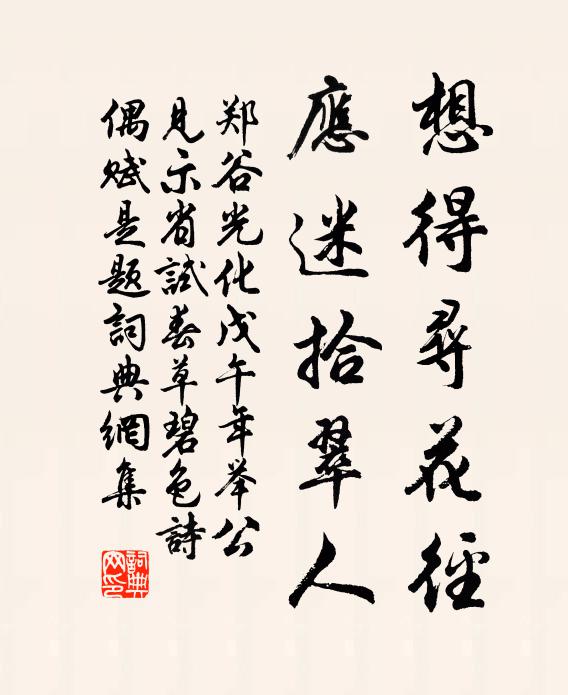 想得尋花徑
應迷拾翠人
郑谷光化戊午年举公
見示省試春草碧色詩
偶赋是題詞典網集
詞典网印